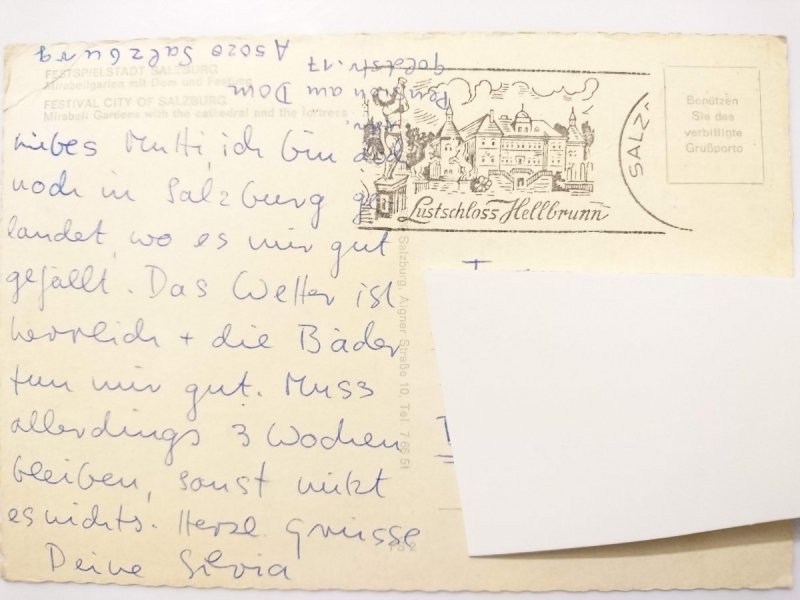 FESTSPIELSTADT SALZBURG
Mirabellgarten mit Dom und Festung
FESTIVAL CITY OF SALZBURG
Mirabell Gardens with the cathedral and the fortress
Pension am Dom
Goldstr. 17
A 5020 Salzburg
Liebes Mutti, ich bin doch
noch in Salzburg ge-
landet, wo es mir gut
gefällt. Das Wetter ist
herrlich + die Bäder
tun mir gut. Muss
allerdings 3 Wochen
bleiben, sonst nützt
es nichts. Herzl. Grüsse
Deine Silvia
Lustschloss Hellbrunn
SALZ
Benützen
Sie das
verbilligte
Grußporto
Salzburg, Aigner Straße 10, Tel. 7 66 51